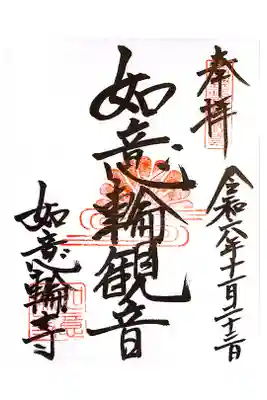 奉拝
令和六年十一月二十三日
如意輪観音
如意輪寺